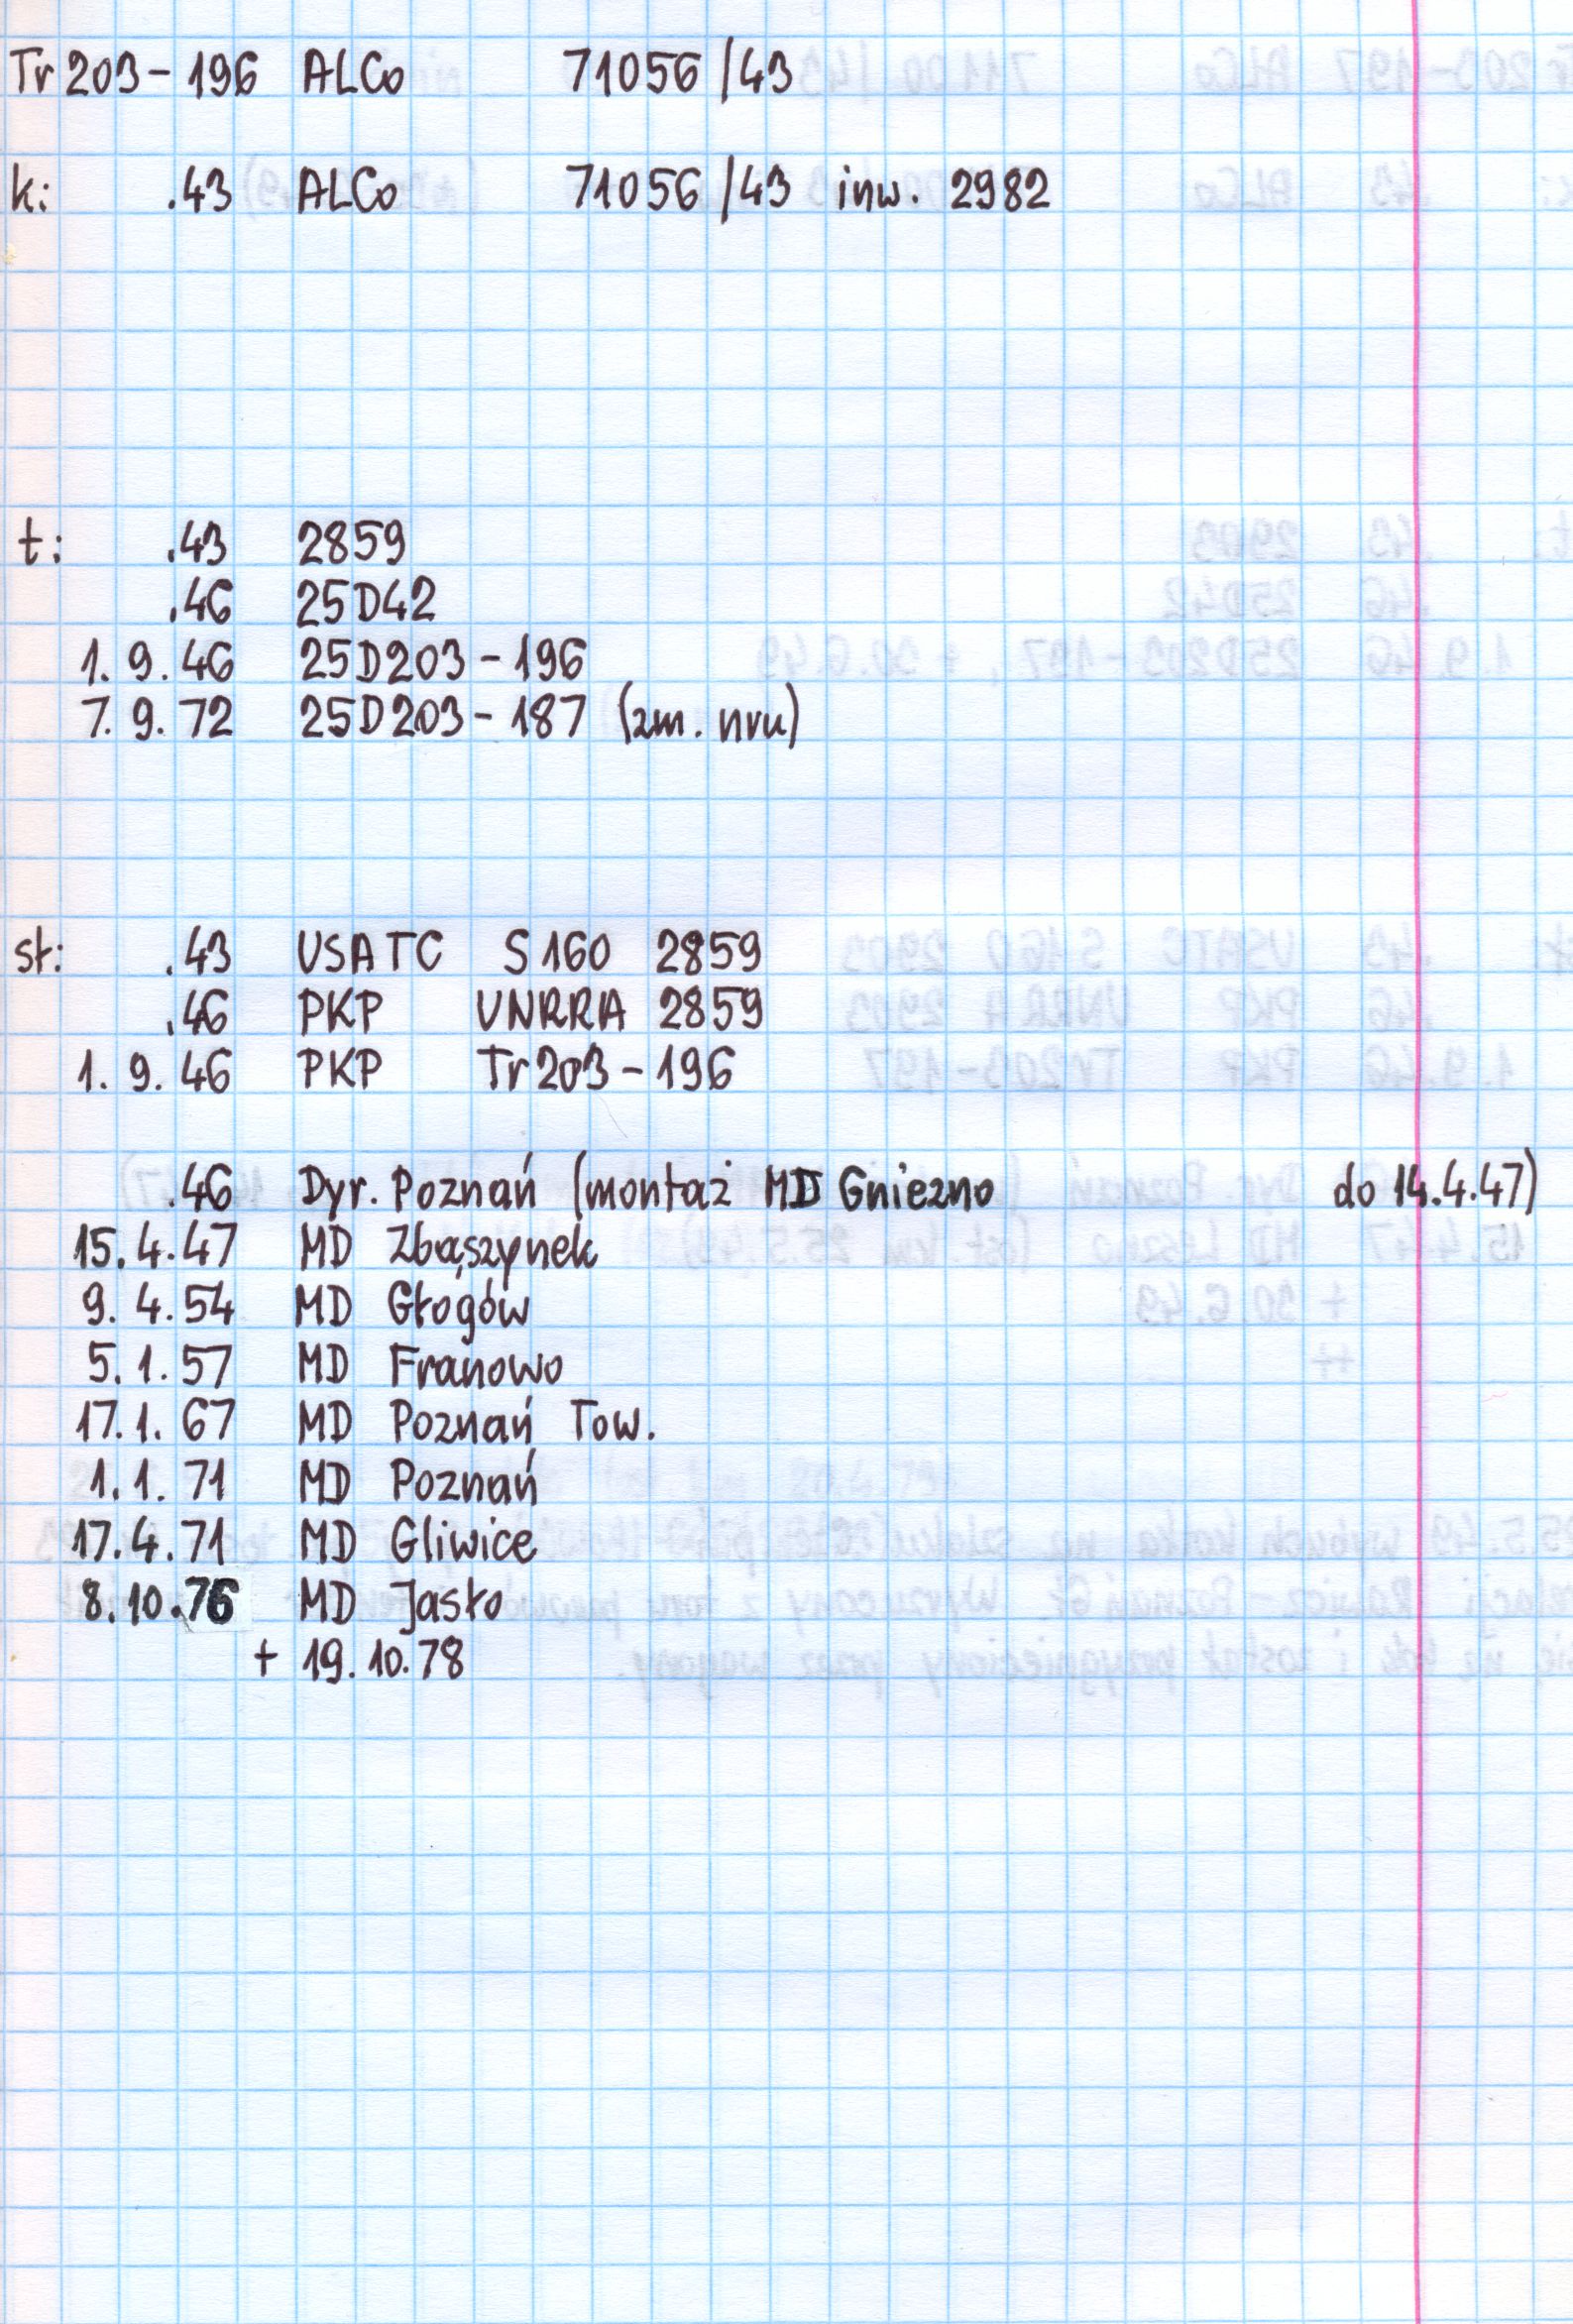 Tr 203-196 ALCo 71056/43
k: .43 ALCo 71056/43 inw. 2982
t: .43 2859
.46 25D42
1.9.46 25D203-196
7.9.72 25D203-187 (zm. nru)
st: .43 USATC S160 2859
.46 PKP UNRRA 2859
1.9.46 PKP Tr203-196
.46 Dyr. Poznań (montaż MD Gniezno do 14.4.47)
15.4.47 MD Zbąszynek
9.4.54 MD Głogów
5.1.57 MD Franowo
17.1.67 MD Poznań Tow.
1.1.71 MD Poznań
17.4.71 MD Gliwice
8.10.76 MD Jasło
+ 19.10.78